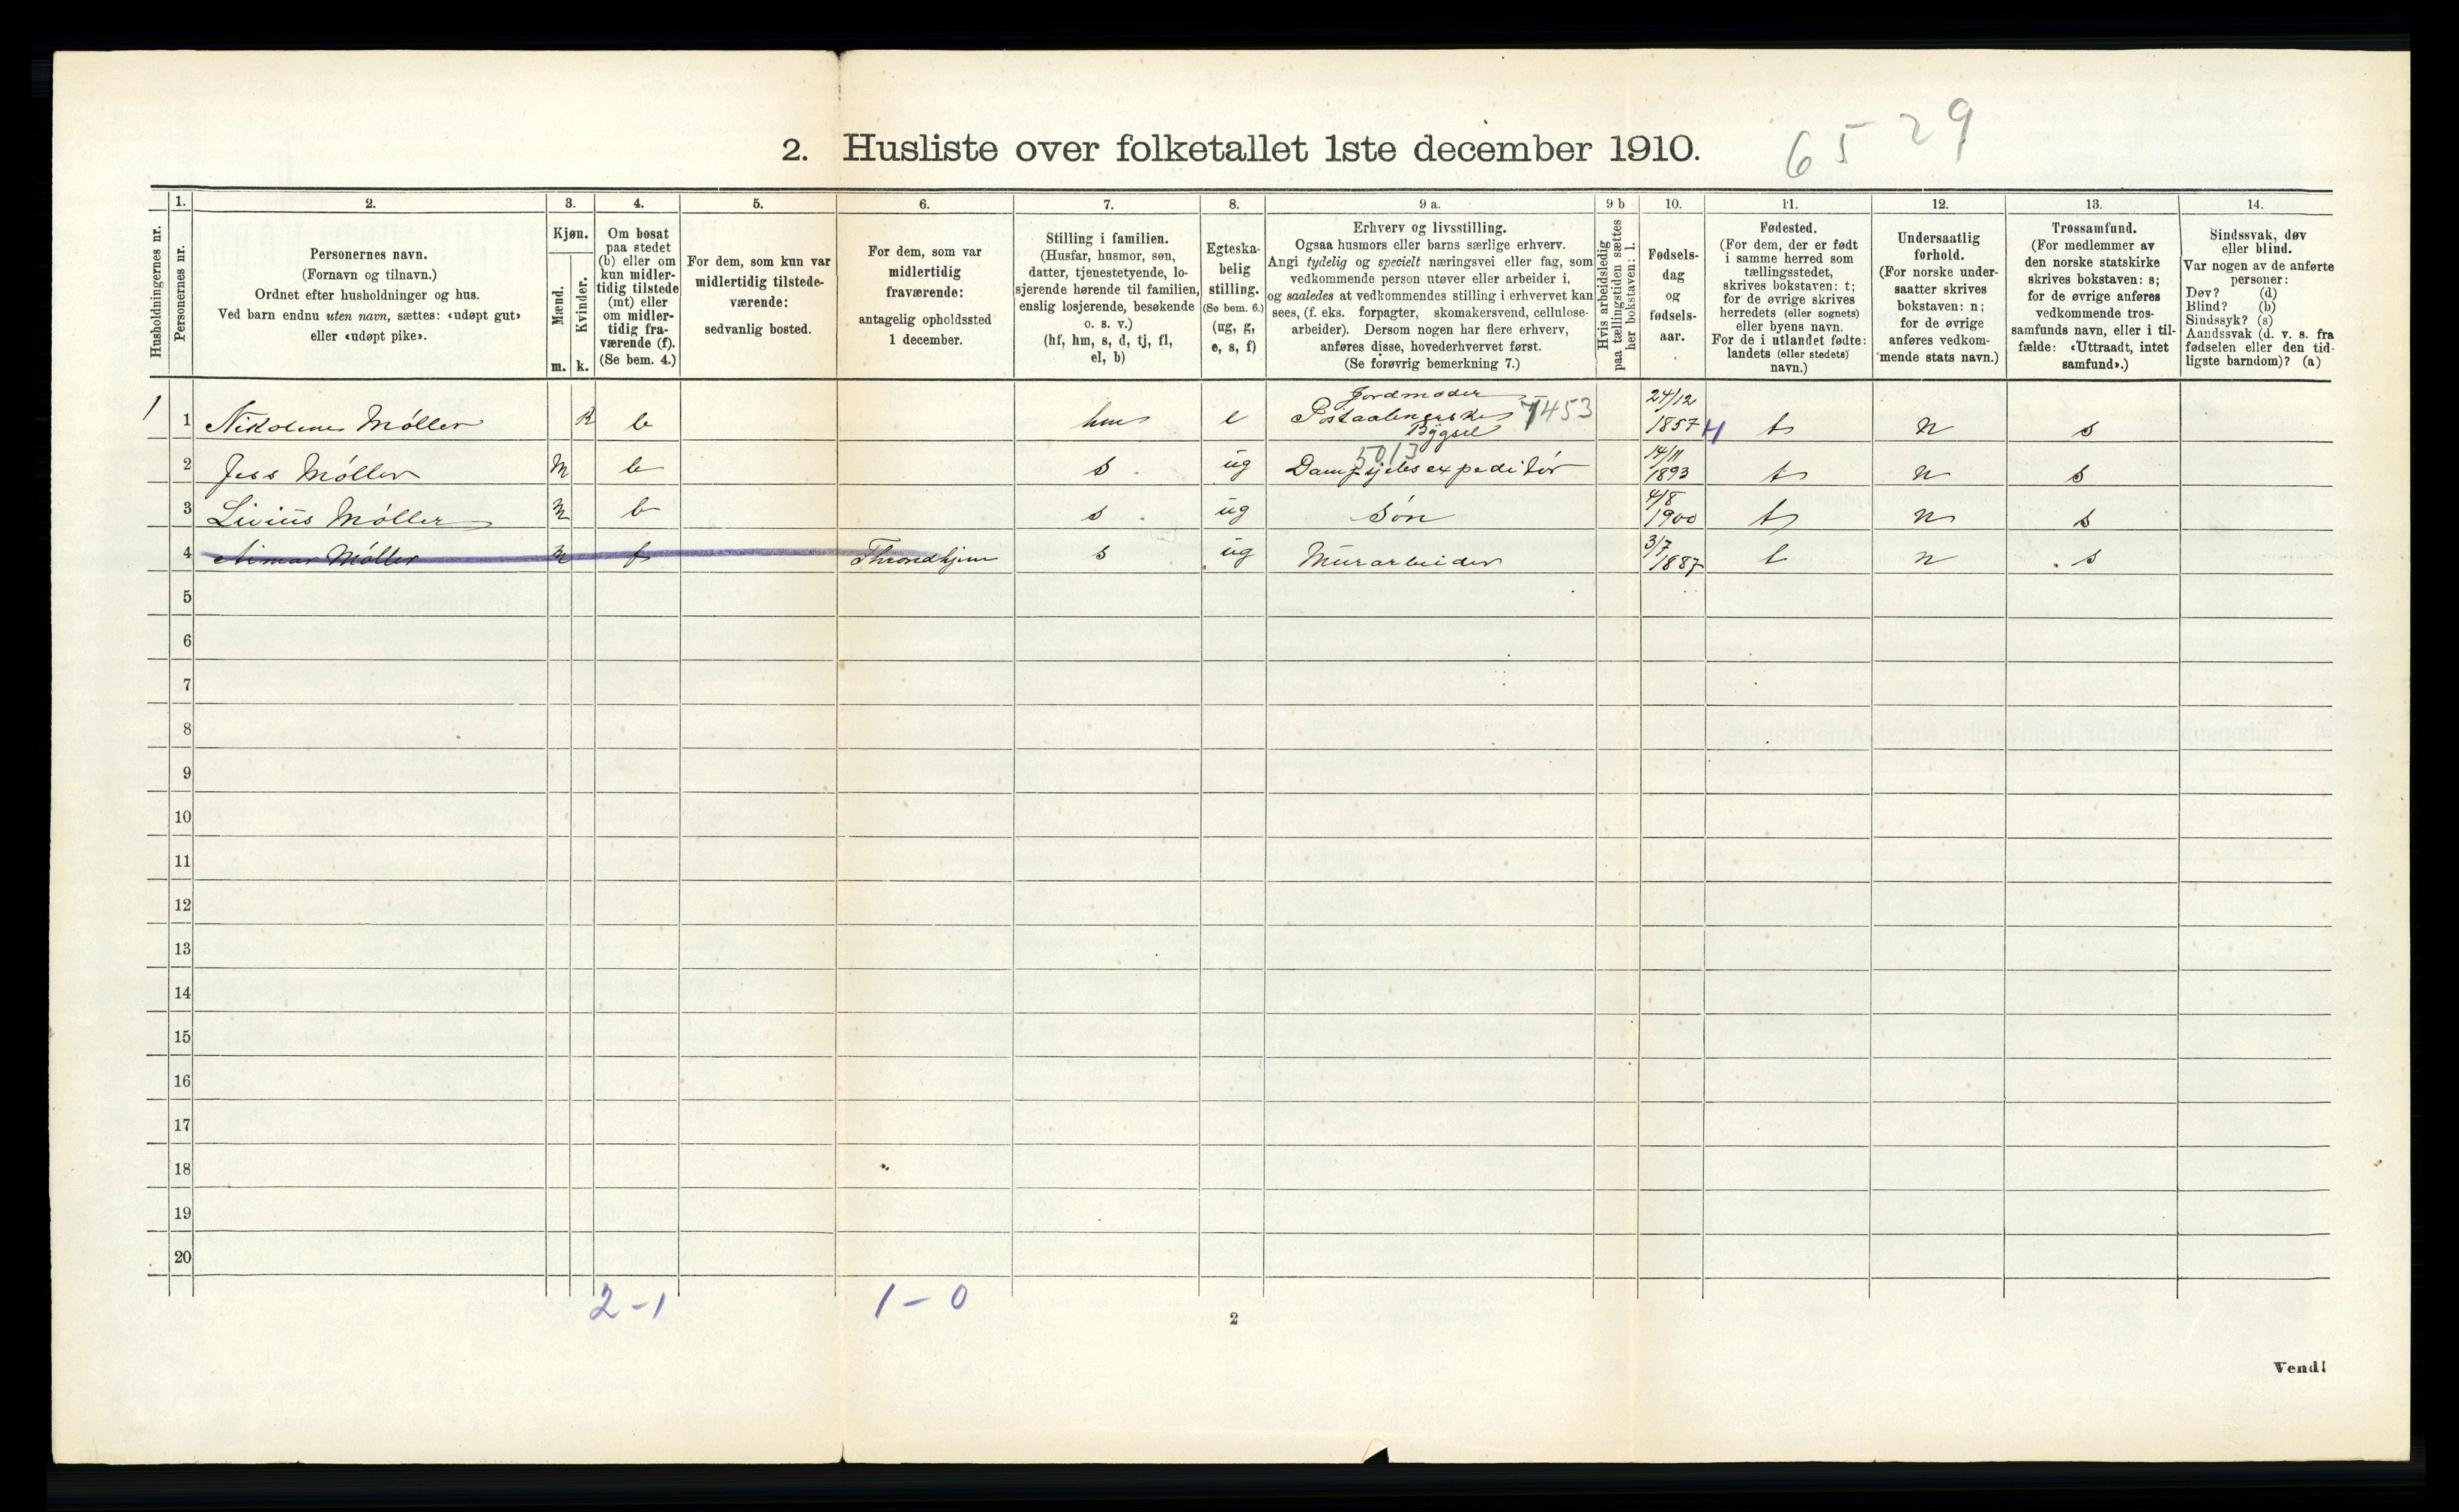 2. Husliste over folketallet 1ste december 1910.
65 29
Husholdningernes nr.
1.
Personernes nr.
2.
Personernes navn.
(Fornavn og tilnavn.)
Ordnet efter husholdninger og hus.
Ved barn endnu uten navn, sættes: «udøpt gut»
eller «udøpt pike».
3.
Kjøn.
Mænd.
Kvinder.
m. k.
4.
Om bosat
paa stedet
(b) eller om
kun midler-
tidig tilstede
(mt) eller
om midler-
tidig fra-
værende (f).
(Se bem. 4.)
5.
For dem, som kun var
midlertidig tilstede-
værende:
sedvanlig bosted.
6.
For dem, som var
midlertidig
fraværende:
antagelig opholdssted
1 december.
7.
Stilling i familien.
(Husfar, husmor, søn,
datter, tjenestetyende, lo-
sjerende hørende til familien,
enslig losjerende, besøkende
o. s. v.)
(hf, hm, s, d, tj, fl,
el, b)
8.
Egteska-
belig
stilling.
(Se bem. 6.)
(ug, g,
e, s, f)
9 a.
Erhverv og livsstilling.
Ogsaa husmors eller barns særlige erhverv.
Angi tydelig og specielt næringsvei eller fag, som
vedkommende person utøver eller arbeider i,
og saaledes at vedkommendes stilling i erhvervet kan
sees, (f. eks. forpagter, skomakersvend, cellulose-
arbeider). Dersom nogen har flere erhverv,
anføres disse, hovederhvervet først.
(Se forøvrig bemerkning 7.)
9 b
Hvis arbeidsledig
paa tællingstiden sættes
her bokstaven: l.
10.
Fødsels-
dag
og
fødsels-
aar.
11.
Fødested.
(For dem, der er født
i samme herred som
tællingsstedet,
skrives bokstaven: t;
for de øvrige skrives
herredets (eller sognets)
eller byens navn.
For de i utlandet fødte:
landets (eller stedets)
navn.)
12.
Undersaatlig
forhold.
(For norske under-
saatter skrives
bokstaven: n;
for de øvrige
anføres vedkom-
mende stats navn.)
13.
Trossamfund.
(For medlemmer av
den norske statskirke
skrives bokstaven: s;
for de øvrige anføres
vedkommende tros-
samfunds navn, eller i til-
fælde: «Uttraadt, intet
samfund».)
14.
Sindssvak, døv
eller blind.
Var nogen av de anførte
personer:
Døv? (d)
Blind? (b)
Sindssyk? (s)
Aandssvak (d. v. s. fra
fødselen eller den tid-
ligste barndom)? (a)
1 1 Nikoline Møller K b hm e Jordmoder 7453 24/12 1857 t n s
Postaabnerske
Bygsel
5013
2 Jess Møller M b s ug Dampskibsexpeditør 14/11 1893 t n s
3 Livius Møller M b s ug Søn 4/8 1900 t n s
4 Møller M f Throndhjem s ug Murarbeider 3/7 1887 t n s
5
6
7
8
9
10
11
12
13
14
15
16
17
18
19
20
2-1 1-0
2
Vend!